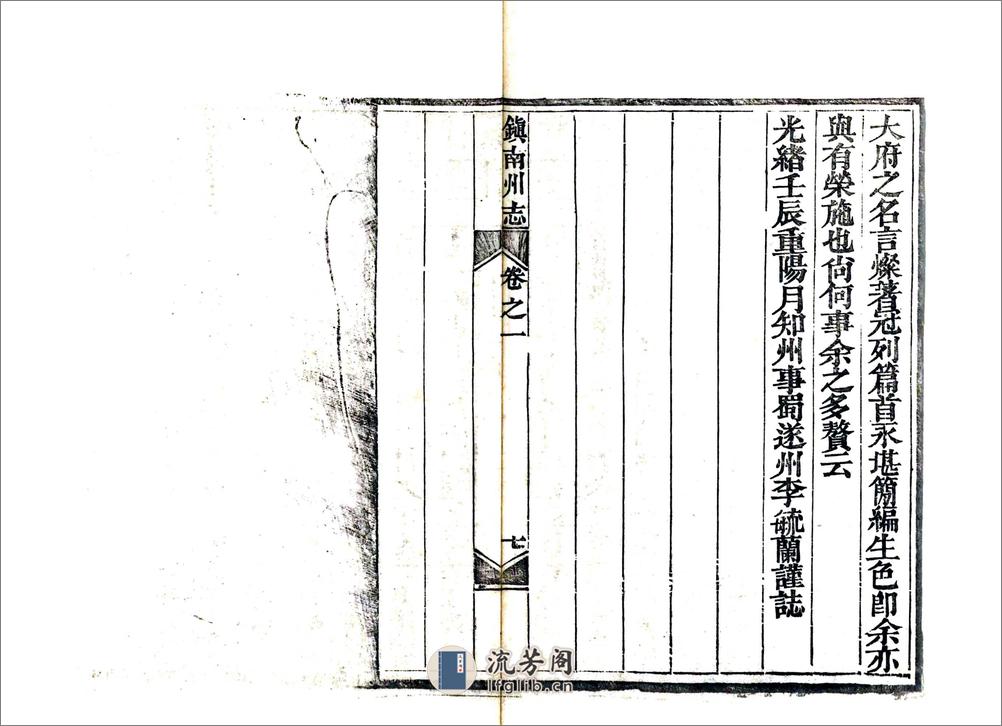 大府之名言燦著冠列篇首永堪簡編生色卽余亦
與有榮施也尙何事余之多贅云
光緖壬辰重陽月知州事蜀遂州李毓蘭謹誌
鎭南州志
卷之一
七
流芳阁
lfglib.cn